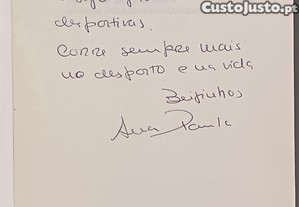 CustoJusto.pt
desportivas.
Corre sempre mais
no desporto e na vida
Beijinhos
Ana Paula